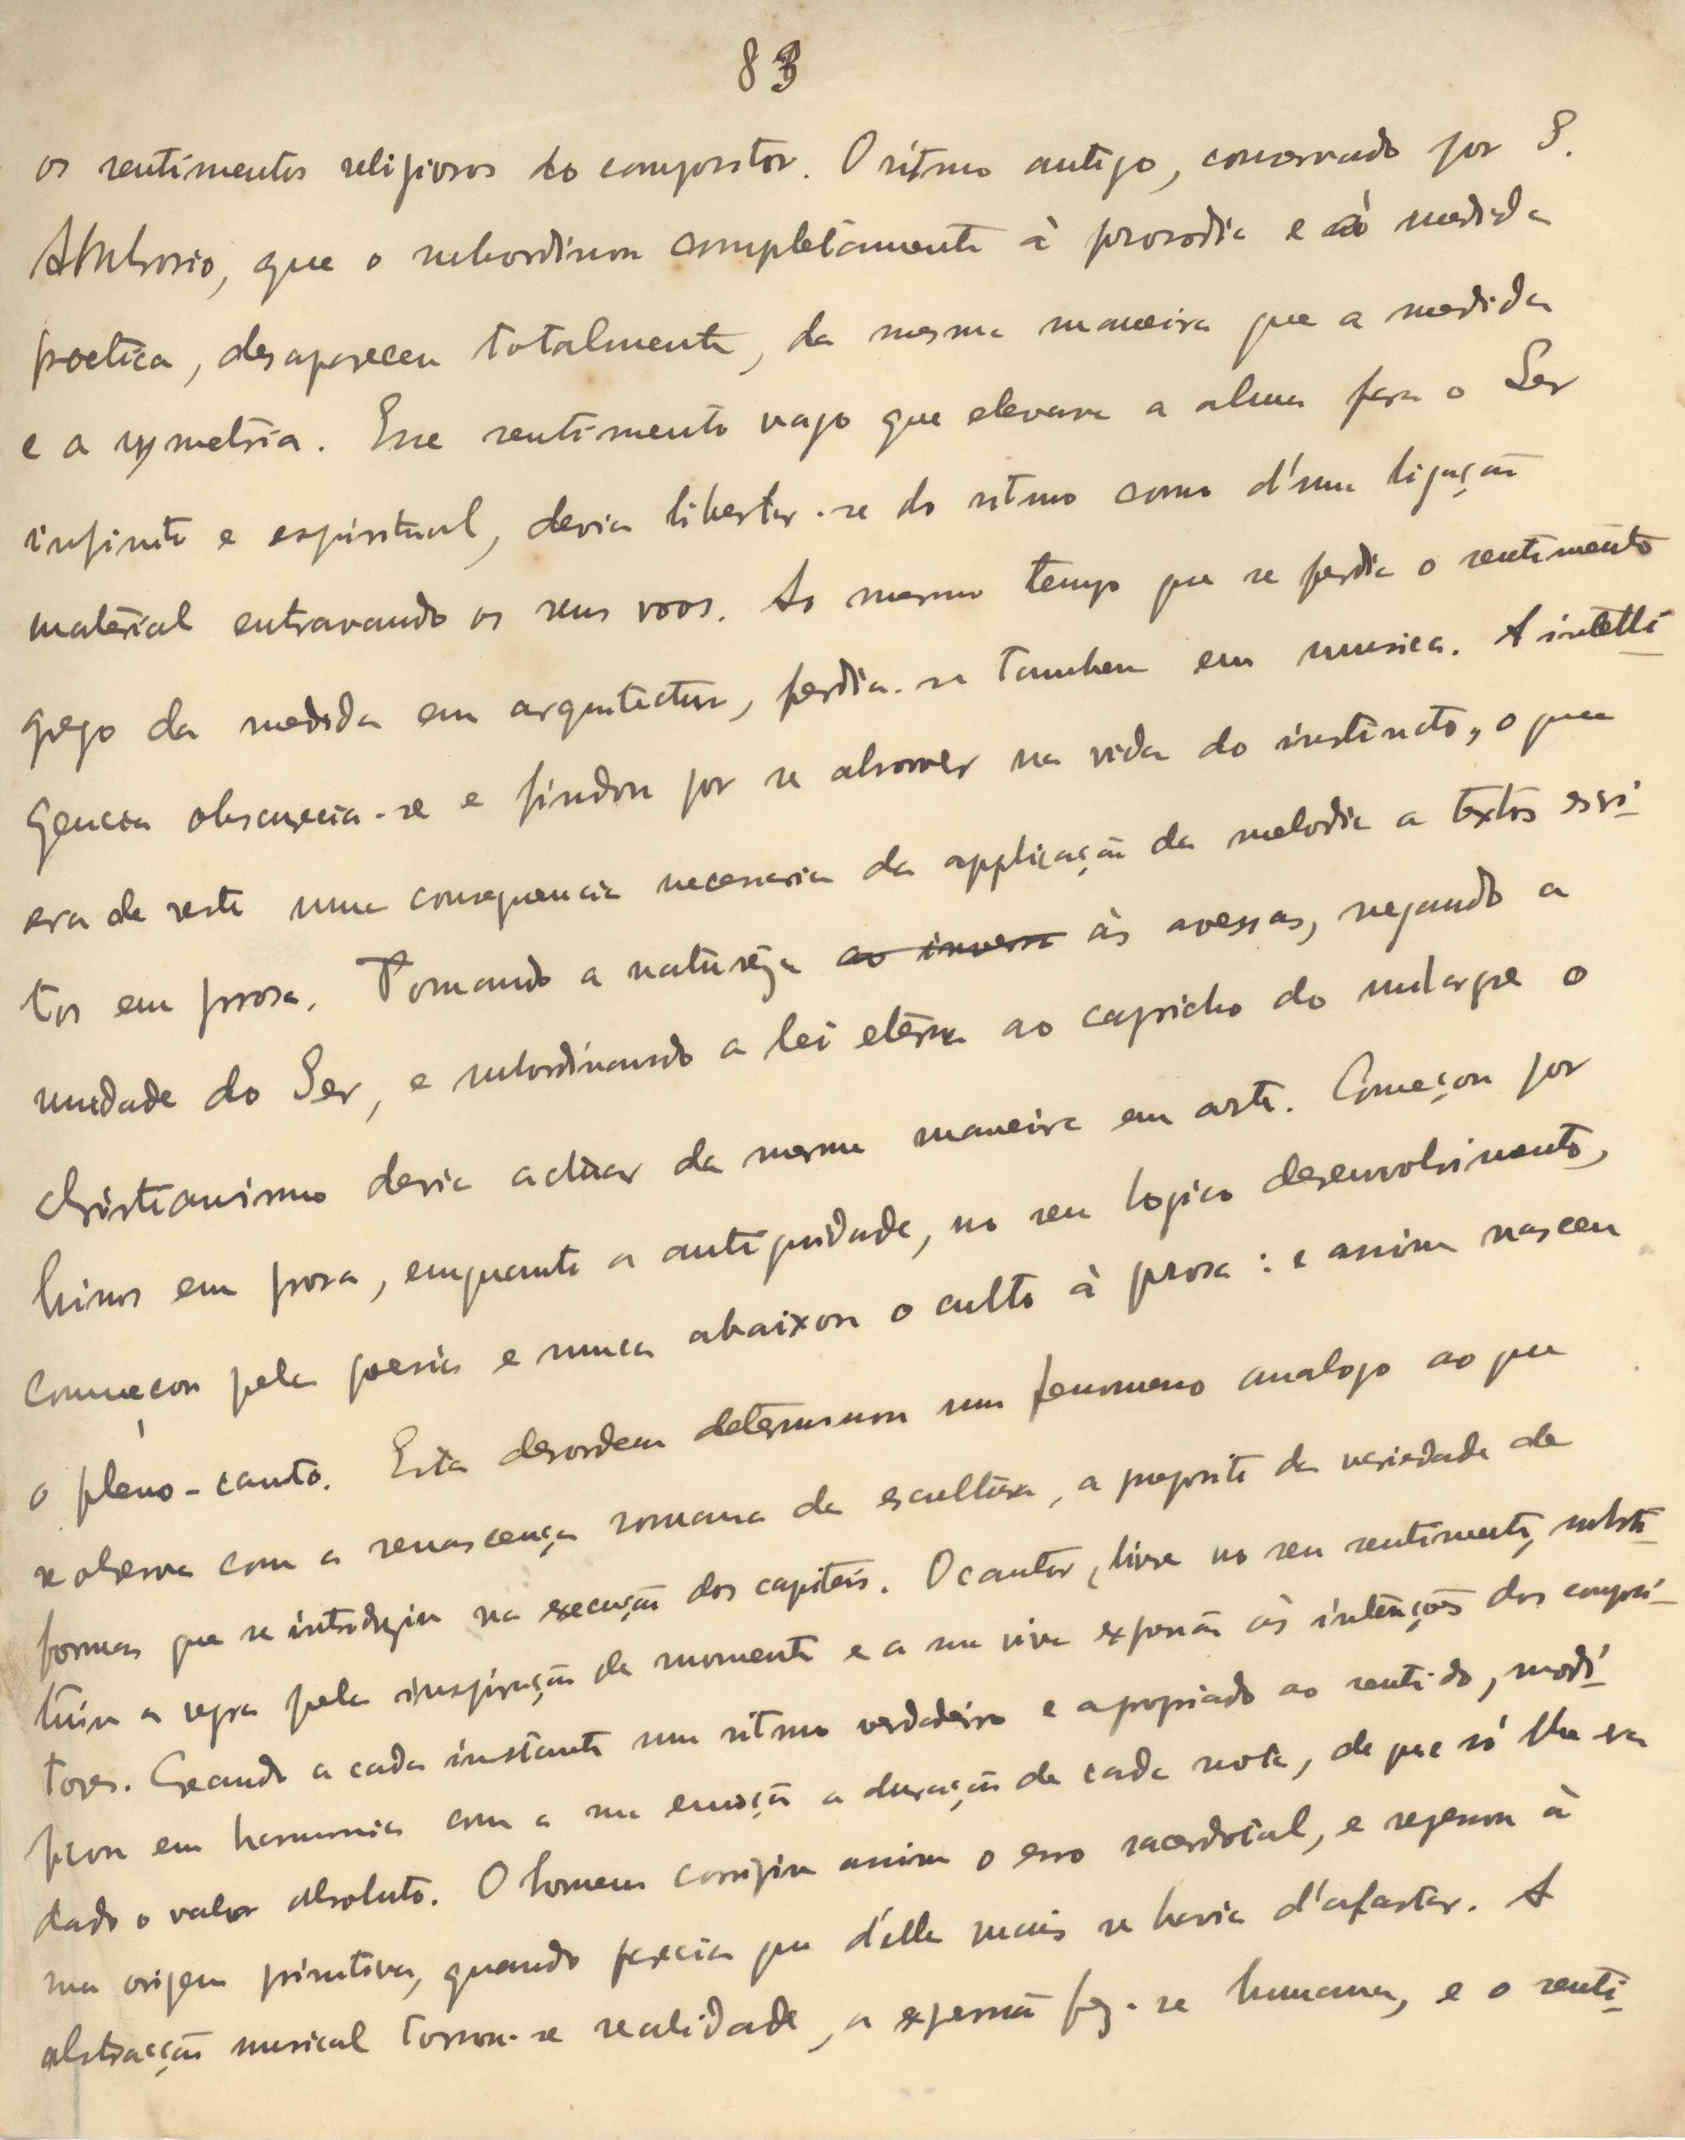 83
os sentimentos religiosos do compositor. O ritmo antigo, conservado por S.
Ambrosio, que o subordinou completamente à prosodia e à medida
poetica, desapareceu totalmente, da mesma maneira que a medida
e a symetria. Esse sentimento vago que elevava a alma para o Ser
infinito e espiritual, devia libertar-se do ritmo como d'uma ligação
material entravando os seus voos. Ao mesmo tempo que se perdia o sentimento
grego da medida em arquitectura, perdia-se tambem em musica. A intelli-
gencia obscurecia-se e findou por se absorver na vida do instincto, o que
era de resto uma consequencia necessaria da applicação da melodia a textos escri-
tos em prosa. Tomando a natureza ao inverso às avessas, negando a
unidade do Ser, e subordinando a lei eterna ao capricho do milagre o
christianismo devia actuar da mesma maneira em arte. Começou por
hinos em prosa, emquanto a antiguidade, no seu logico desenvolvimento,
começou pela poesia e nunca abaixou o culto à prosa: e assim nasceu
o pleno-canto. Esta desordem determinou um fenomeno analogo ao que
se observa com a renascença romana da escultura, a proposito da variedade de
formas que se introduziu na execução dos capiteis. O cantor, livre no seu sentimento, substi-
tuiu a regra pela inspiração do momento e a sua viva expressão às intenções dos composi-
tores. Creando a cada instante um ritmo verdadeiro e apropriado ao sentido, modi-
ficou em harmonia com a sua emoção a duração de cada nota, de que só lhe era
dado o valor absoluto. O homem corrigiu assim o erro sacerdotal, e regressou à
sua origem primitiva, quando parecia que d'ella mais se havia d'afastar. A
abstracção musical tornou-se realidade, a expressão fez-se humana, e o senti-